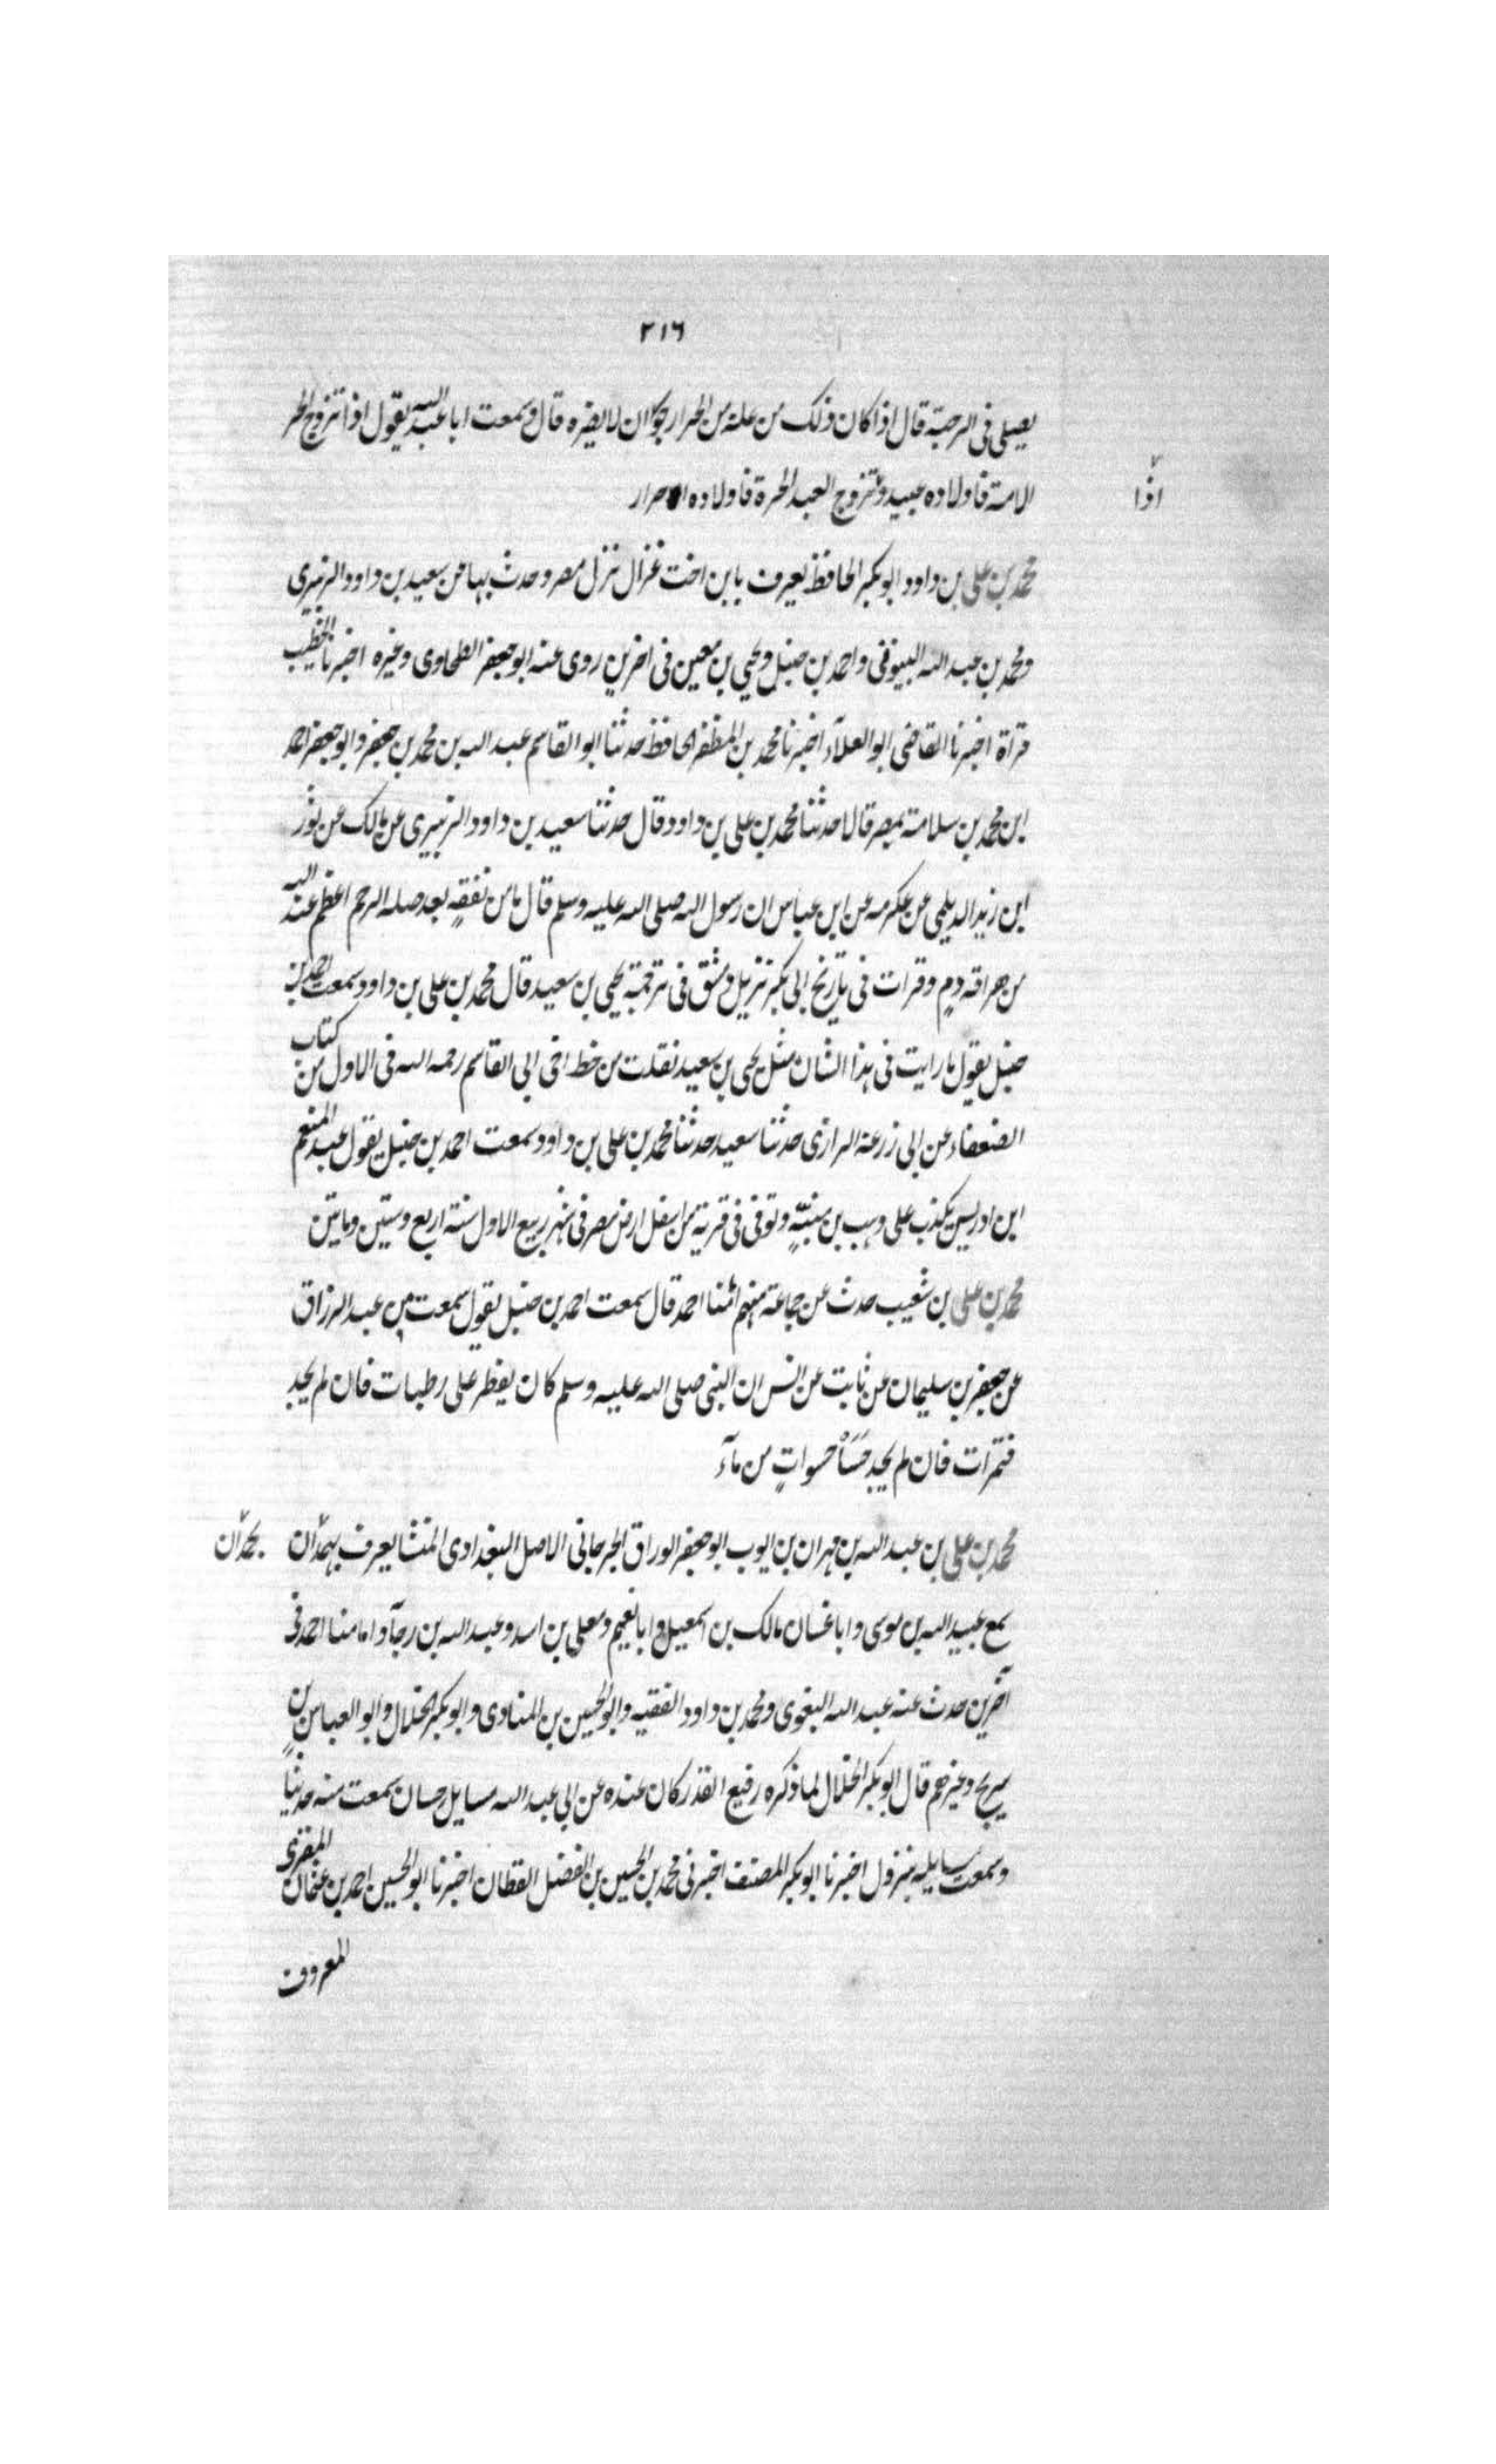 ٢١٦
يصلي في الرحبة قال اذا كان ذلك من علة من الحر ارجو ان لا يضره قال وسمعت ابا عبد الله يقول اذا تزوج الحر
الامة فاولاده عبيد و تزوج العبد الحرة فاولاده احرار
اذا
محمد بن علي بن داود ابو بكر الحافظ يعرف بابن اخت غزال نزل مصر وحدث بها عن سعيد بن داود الزنبري
ومحمد بن عبد الله واحمد بن حنبل ويحيي بن معين في اخرين روى عنه ابو جعفر الطحاوى وغيره اخبرنا الخطيب
قراة اخبرنا القاضي ابو العلآء اخبرنا محمد بن المظفر الحافظ حدثنا ابو القاسم عبد الله بن محمد بن جعفر وابو جعفر احمد
ابن محمد بن سلامة بمصر قالا حدثنا محمد بن علي بن داود قال حدثنا سعيد بن داود الزنبرى عن مالك عن ثور
ابن زيد الديلمي عن عكرمه عن ابن عباس ان رسول الله صلى الله عليه وسلم قال ما من نفقةٍ بعد صله الرحم اعظم عند الله
من هراقه دمٍ وقرات في تاريخ ابي بكر نزيل دمشق في ترجمة يحيي بن سعيد قال محمد بن علي بن داود سمعت احمد بن
حنبل يقول ما رايت في هذا الشان مثل يحيى بن سعيد نقلت من خط اخي ابي القاسم رحمه الله في الاول من كتاب
الضعفاء عن ابي زرعة الرازى حدثنا سعيد حدثنا محمد بن علي بن داود سمعت احمد بن حنبل يقول عبد المنعم
ابن ادريس يكذب على وهب بن منبّهٍ وتوفى في قرية من اسفل ارض مصر في شهر ربيع الاول سنة اربع وستين ومايتين
محمد بن علي بن شعيب حدث عن جماعة منهم امامنا احمد قال سمعت احمد بن حنبل يقول سمعت من عبد الرزاق
عن جعفر بن سليمان عن ثابت عن انس ان النبي صلى الله عليه وسلم كان يفطر على رطبات فان لم يجد
فتمرات فان لم يجد حَسَاْ حسواتٍ من مآء
محمد بن علي بن عبد الله بن مهران بن ايوب ابو جعفر الوراق الجرجاني الاصل البغدادى المنشا يعرف بهمدان
بحمدان
سمع عبيد الله بن موسى وابا غسان مالك بن اسمعيل وابا نعيم ومعلى بن اسد وعبد الله بن رجآء وامامنا احمد في
آخرين حدث عنه عبد الله البغوى ومحمد بن داود الفقيه وابو الحسين بن المنادى وابو بكر الخلال وابو العباس بن
سريج وغيرهم قال ابو بكر الخلال لما ذكره رفيع القدر كان عنده عن ابي عبد الله مسايل حسان سمعت منه حديثاً
وسمعت مسايله بنزول اخبرنا ابو بكر المصنف اخبرني محمد بن الحسين بن الفضل القطان اخبرنا ابو الحسين احمد بن عثمان المقرى
المعروف